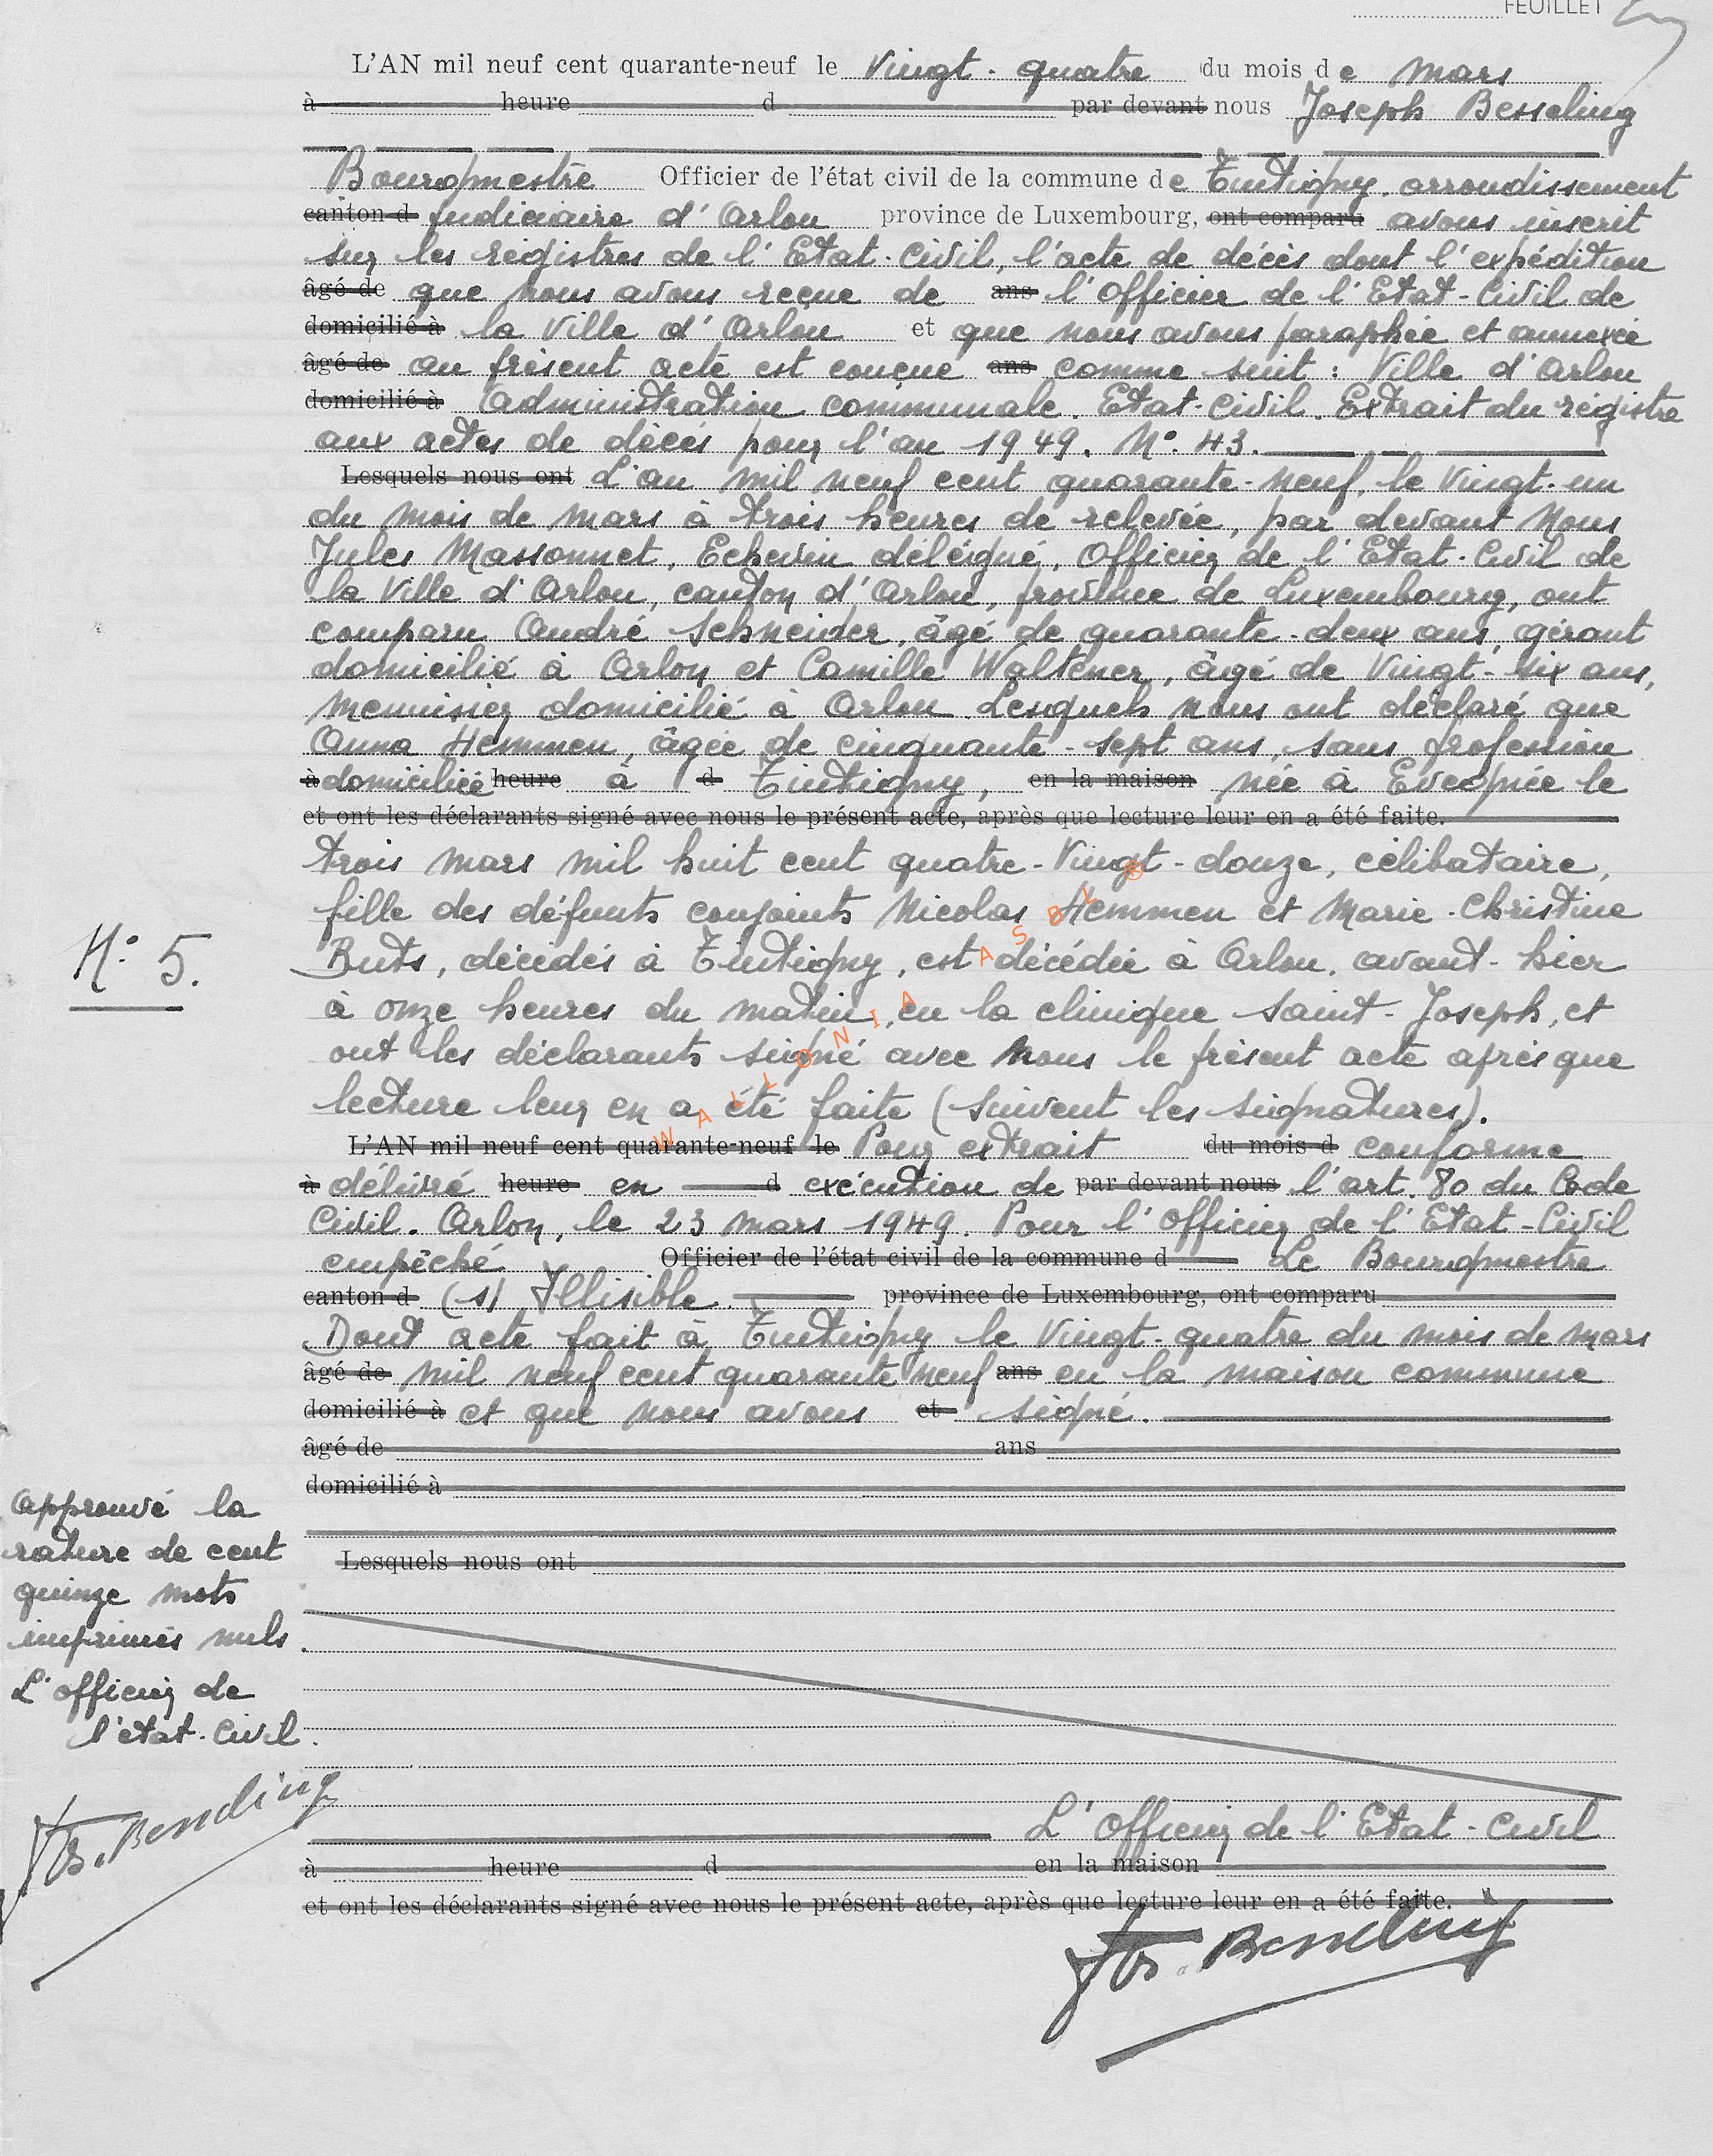 FEUILLET
L'AN mil neuf cent quarante-neuf le Vingt-quatre du mois de mars
à heure d par devant nous Joseph Besseling
Bourgmestre Officier de l'état civil de la commune de Tintigny, arrondissement
canton d judiciaire d'Arlon province de Luxembourg, ont comparu avons inscrit
sur les régistres de l'Etat-Civil, l'acte de décès dont l'expédition
âgé de que nous avons reçue de ans l'Officier de l'Etat-Civil de
domicilié à la Ville d'Arlon et que nous avons paraphée et annexée
âgé de au présent acte est conçue ans comme suit : Ville d'Arlon
domicilié à Administration communale. Etat-Civil. Extrait du régistre
aux actes de décès pour l'an 1949. N° 43.
Lesquels nous ont L'an mil neuf cent quarante-neuf, le Vingt-un
du mois de mars à trois heures de relevée, par devant Nous
Jules Massonnet, Echevin délégué, Officier de l'Etat-Civil de
la Ville d'Arlon, canton d'Arlon, province de Luxembourg, ont
comparu André Schneider, âgé de quarante-deux ans, gérant
domicilié à Arlon et Camille Waltener, âgé de Vingt-six ans,
menuisier domicilié à Arlon. Lesquels nous ont déclaré que
Anna Hemmen, âgée de cinquante-sept ans, sans profession
à domiciliée heure à d Tintigny, en la maison née à Evegnée le
et ont les déclarants signé avec nous le présent acte, après que lecture leur en a été faite.
trois mars mil huit cent quatre-Vingt-douze, célibataire,
fille des défunts conjoints Nicolas Hemmen et Marie-Christine
N° 5.
Buts, décédés à Tintigny, est décédée à Arlon, avant-hier
à onze heures du matin, en la clinique Saint-Joseph, et
ont les déclarants signé avec Nous le présent acte après que
lecture leur en a été faite (Suivent les signatures).
WALLONIA ASBL ®
L'AN mil neuf cent quarante-neuf le Pour extrait du mois d conforme
à délivré heure en d exécution de par devant nous l'art. 80 du Code
Civil. Arlon, le 23 mars 1949. Pour l'Officier de l'Etat-Civil
empêché Officier de l'état civil de la commune d Le Bourgmestre
canton d (s) Illisible. province de Luxembourg, ont comparu
Dont acte fait à Tintigny le Vingt-quatre du mois de mars
âgé de mil neuf cent quarante neuf ans en la maison commune
domicilié à et que nous avons et signé.
âgé de ans
domicilié à
Lesquels nous ont
Approuvé la
rature de cent
quinze mots
imprimés nuls.
L'officier de
l'état-Civil.
Jos. Besseling
L'Officier de l'Etat-Civil
à heure d en la maison
et ont les déclarants signé avec nous le présent acte, après que lecture leur en a été faite.
Jos. Besseling